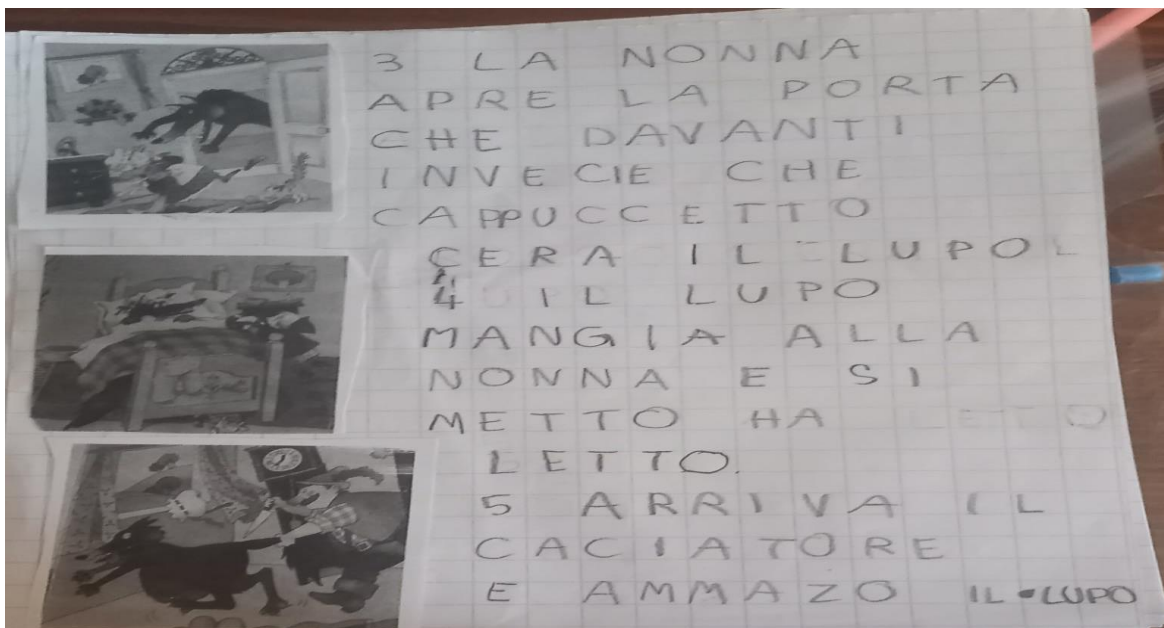 3 LA NONNA
APRE LA PORTA
CHE DAVANTI
INVECIE CHE
CAPPUCCETTO
CERA IL LUPO
4 IL LUPO
MANGIA ALLA
NONNA E SI
METTO HA
LETTO.
5 ARRIVA IL
CACIATORE
E AMMAZO IL LUPO